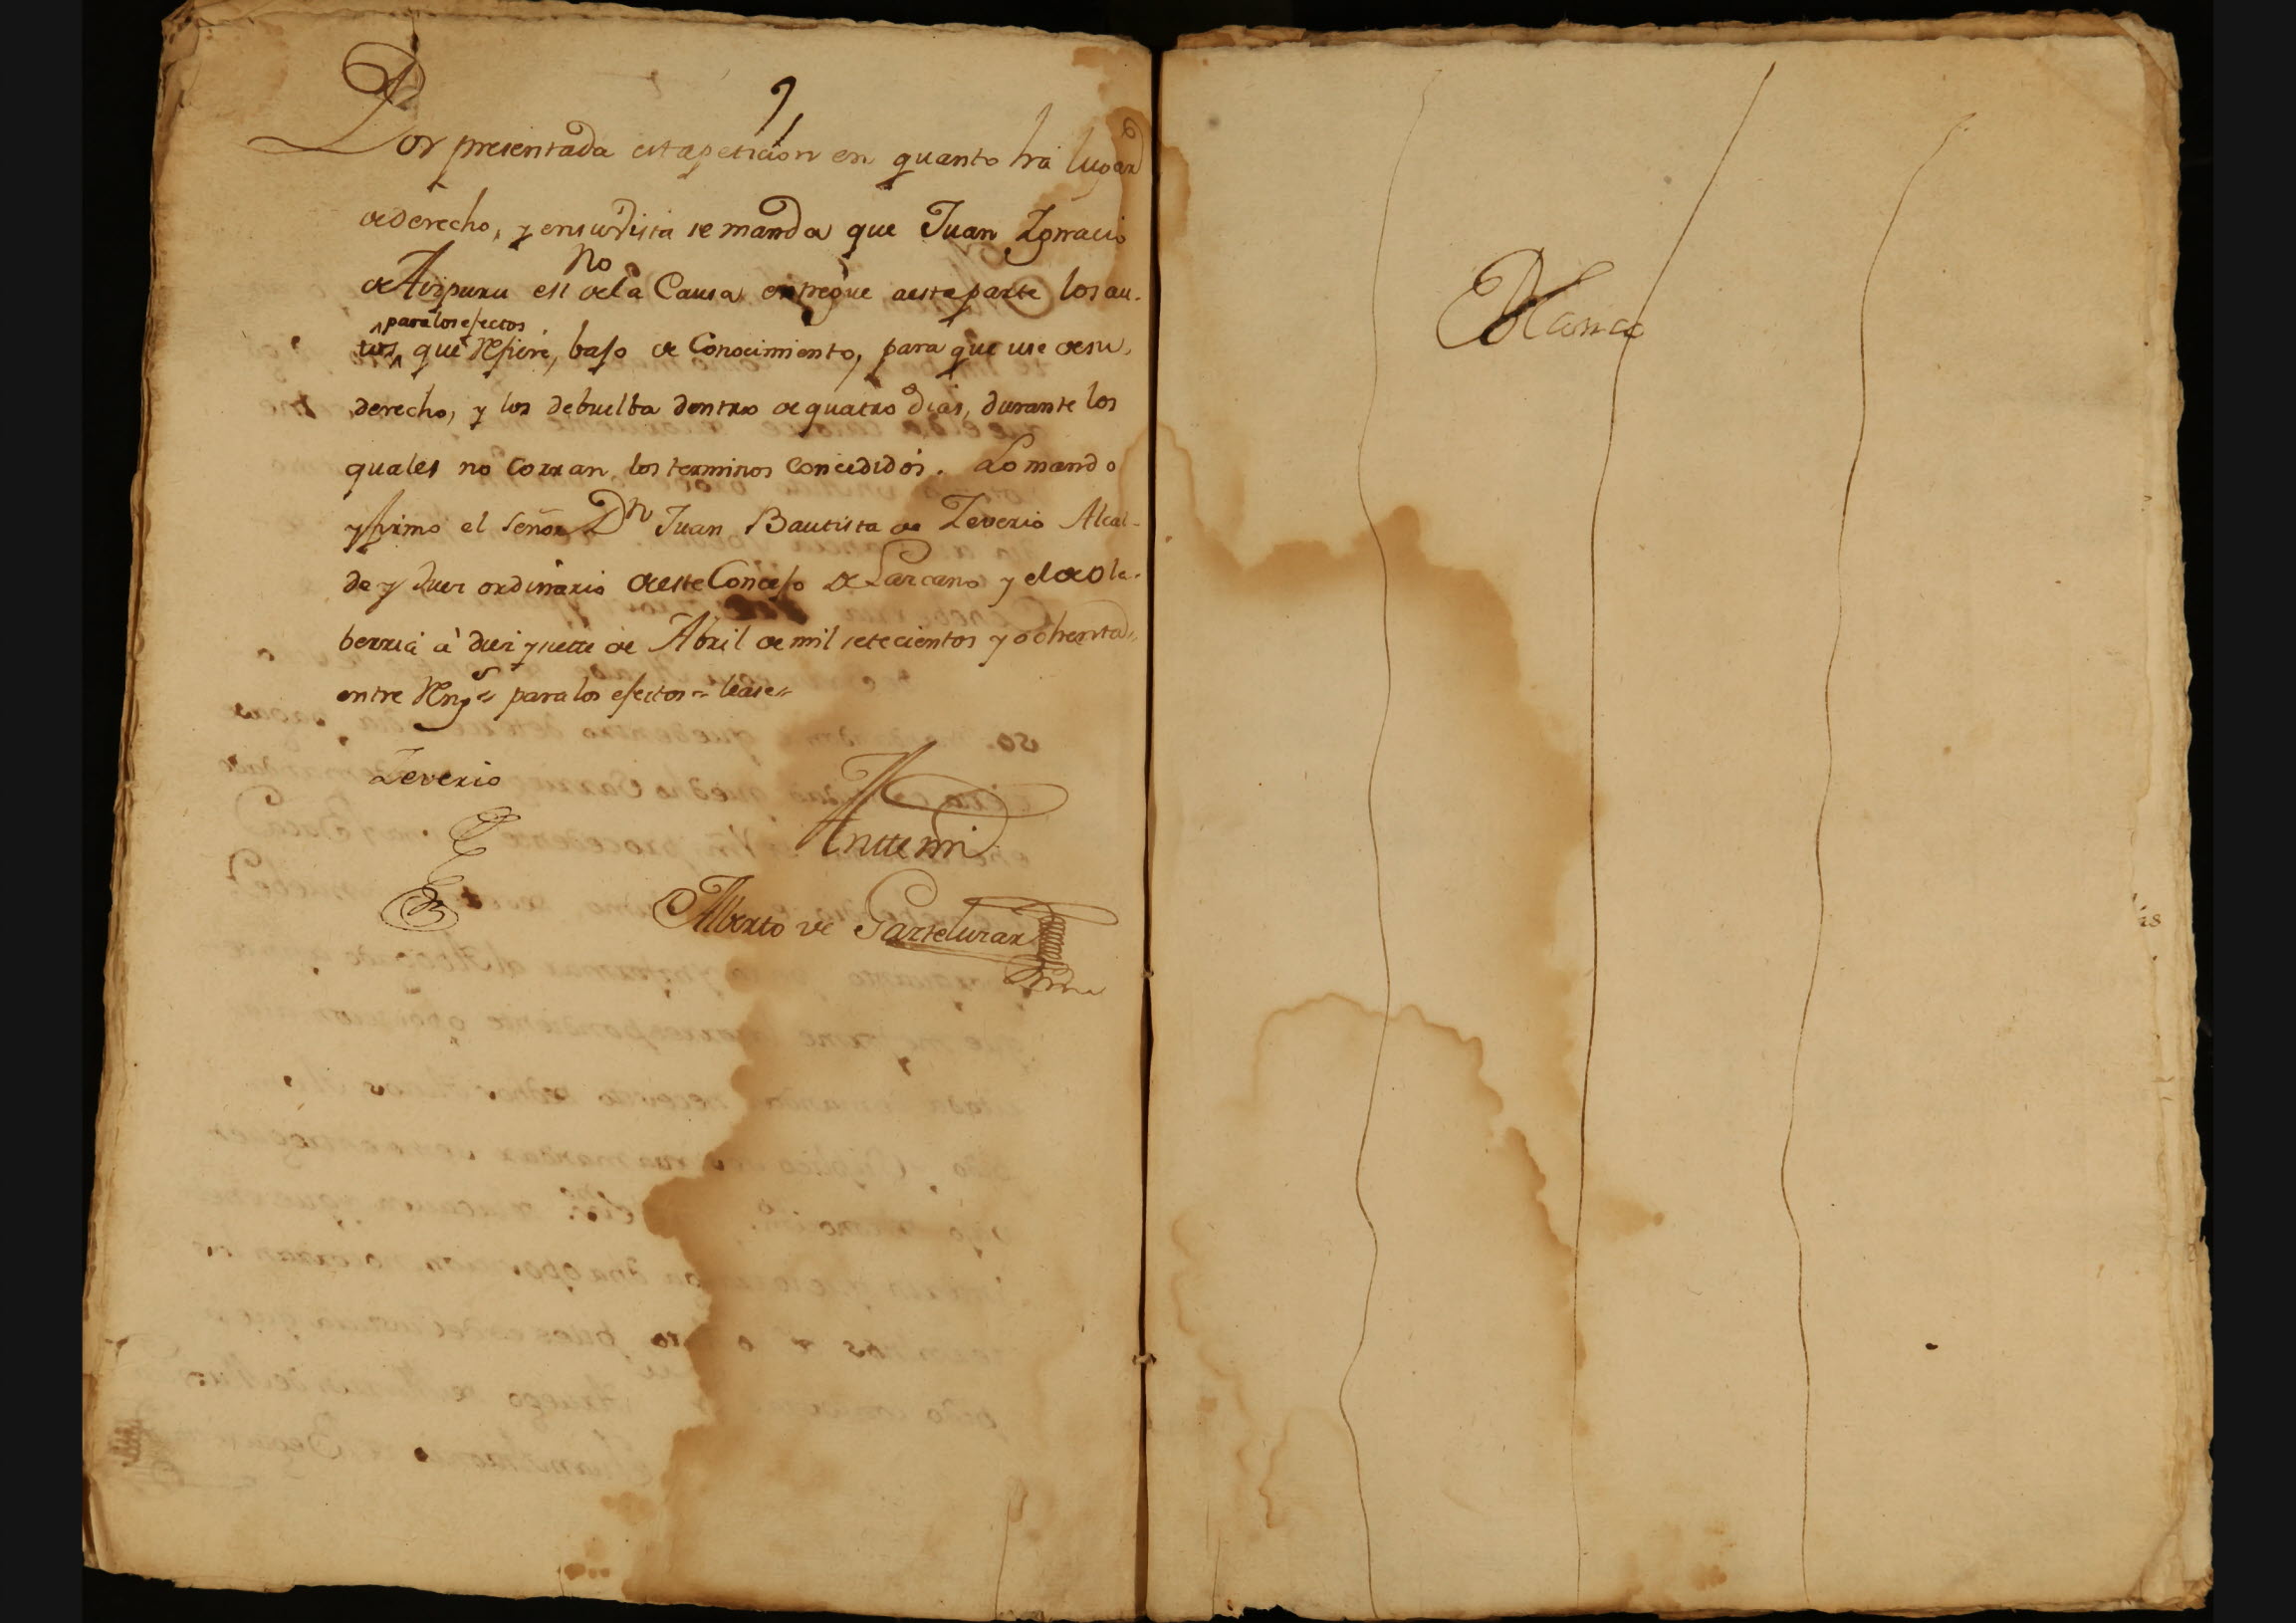 Por presentada esta peticion en quanto há lugar
de derecho, y en su vista se manda que Juan Ignacio
de Aizpuru esno de la Causa entregue a esta parte los au-
tos ^para los efectos^ que refiere, bajo de Conocimiento, para que use de su
derecho, y los debuelba dentro de quatro dias, durante los
quales no corran los terminos concedidos. Lo mando
y firmo el señor Dn Juan Bautista de Zeverio Alcal-
de y Juez ordinario de este Concejo de Lazcano y el de Ola-
berria à diez y siete de Abril de mil setecientos y ochenta=
entre Rengs= para los efectos= lease=
Zeverio
Antte mi
Alberto de Gaztelurar
Blanco